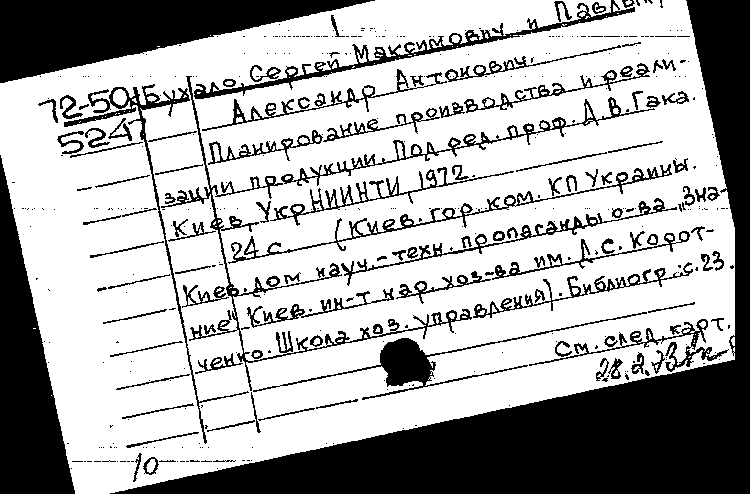 1
72-50
5247
Бухало, Сергей Максимович и
Александр Антонович.
Планирование производства и реали-
зации продукции. Под ред. проф. Д.В.Гака.
Киев, УкрНИИНТИ, 1972.
24 с. (Киев. гор. ком. КП Украины.
Киев. дом науч.-техн. пропаганды о-ва „Зна-
ние" Киев. ин-т нар. хоз-ва им. Д.С. Корот-
ченко. Школа хоз. управления). Библиогр.:с.23.
См. след. карт.
28.2.73
10